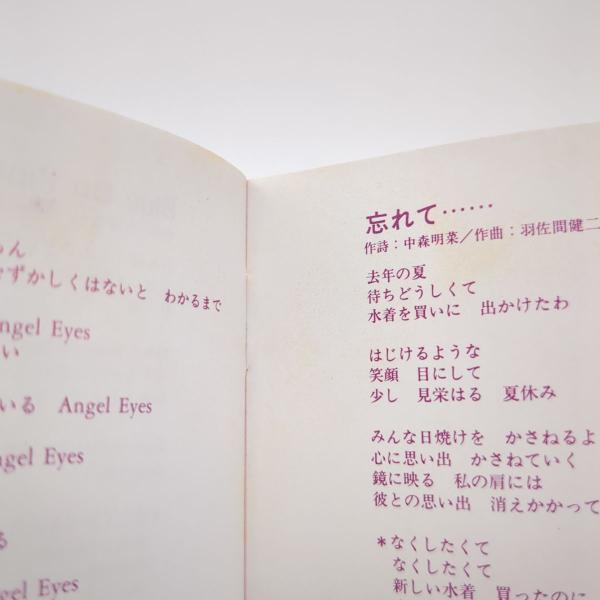 ずかしくはないと　わかるまで
ngel Eyes
い
いる　Angel Eyes
ngel Eyes
る
Angel Eyes
忘れて……
作詩：中森明菜／作曲：羽佐間健二
去年の夏
待ちどうしくて
水着を買いに　出かけたわ
はじけるような
笑顔　目にして
少し　見栄はる　夏休み
みんな日焼けを　かさねるよ
心に思い出　かさねていく
鏡に映る　私の肩には
彼との思い出　消えかかって
＊なくしたくて
なくしたくて
新しい水着　買ったのに